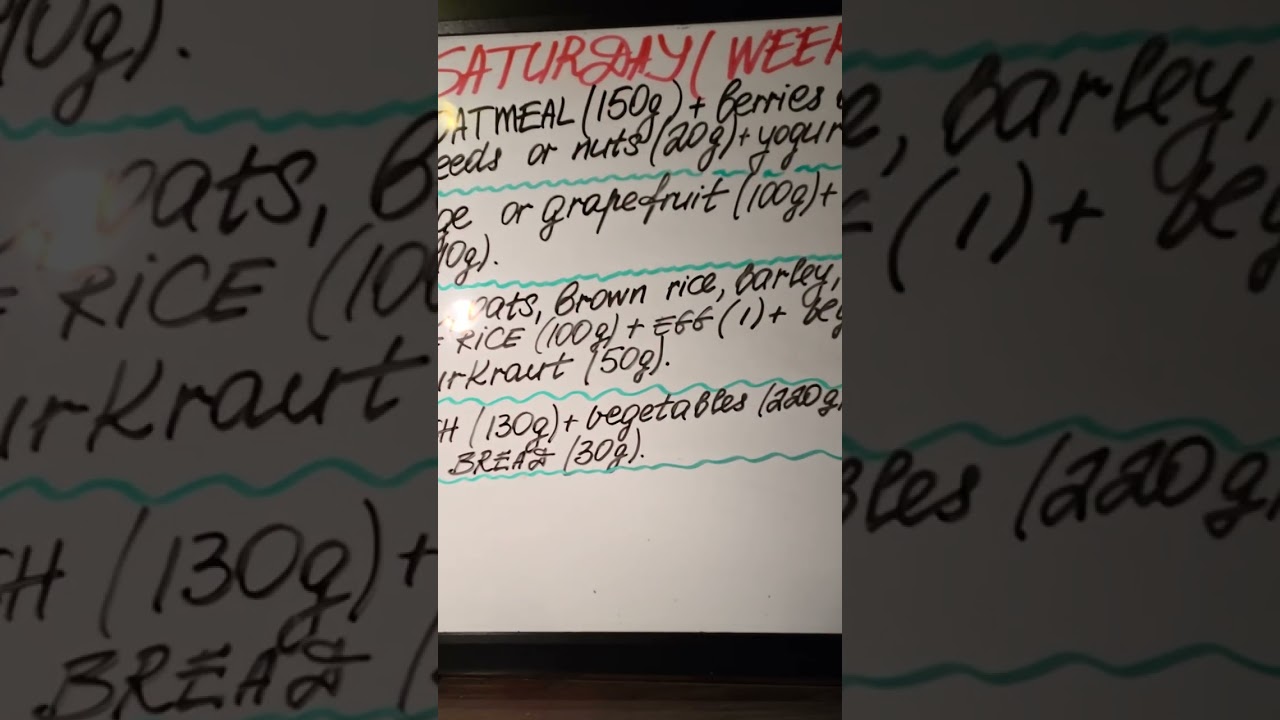 SATURDAY (WEEK
OATMEAL (150g) + berries
seeds or nuts (20g) + yogur
ge or grapefruit (100g) +
10g).
oats, Brown rice, barley,
= RiCE (100g) + EGG (1) + veg
urkraut (50g).
SH (130g) + vegetables (220g)
BREAD (30g).